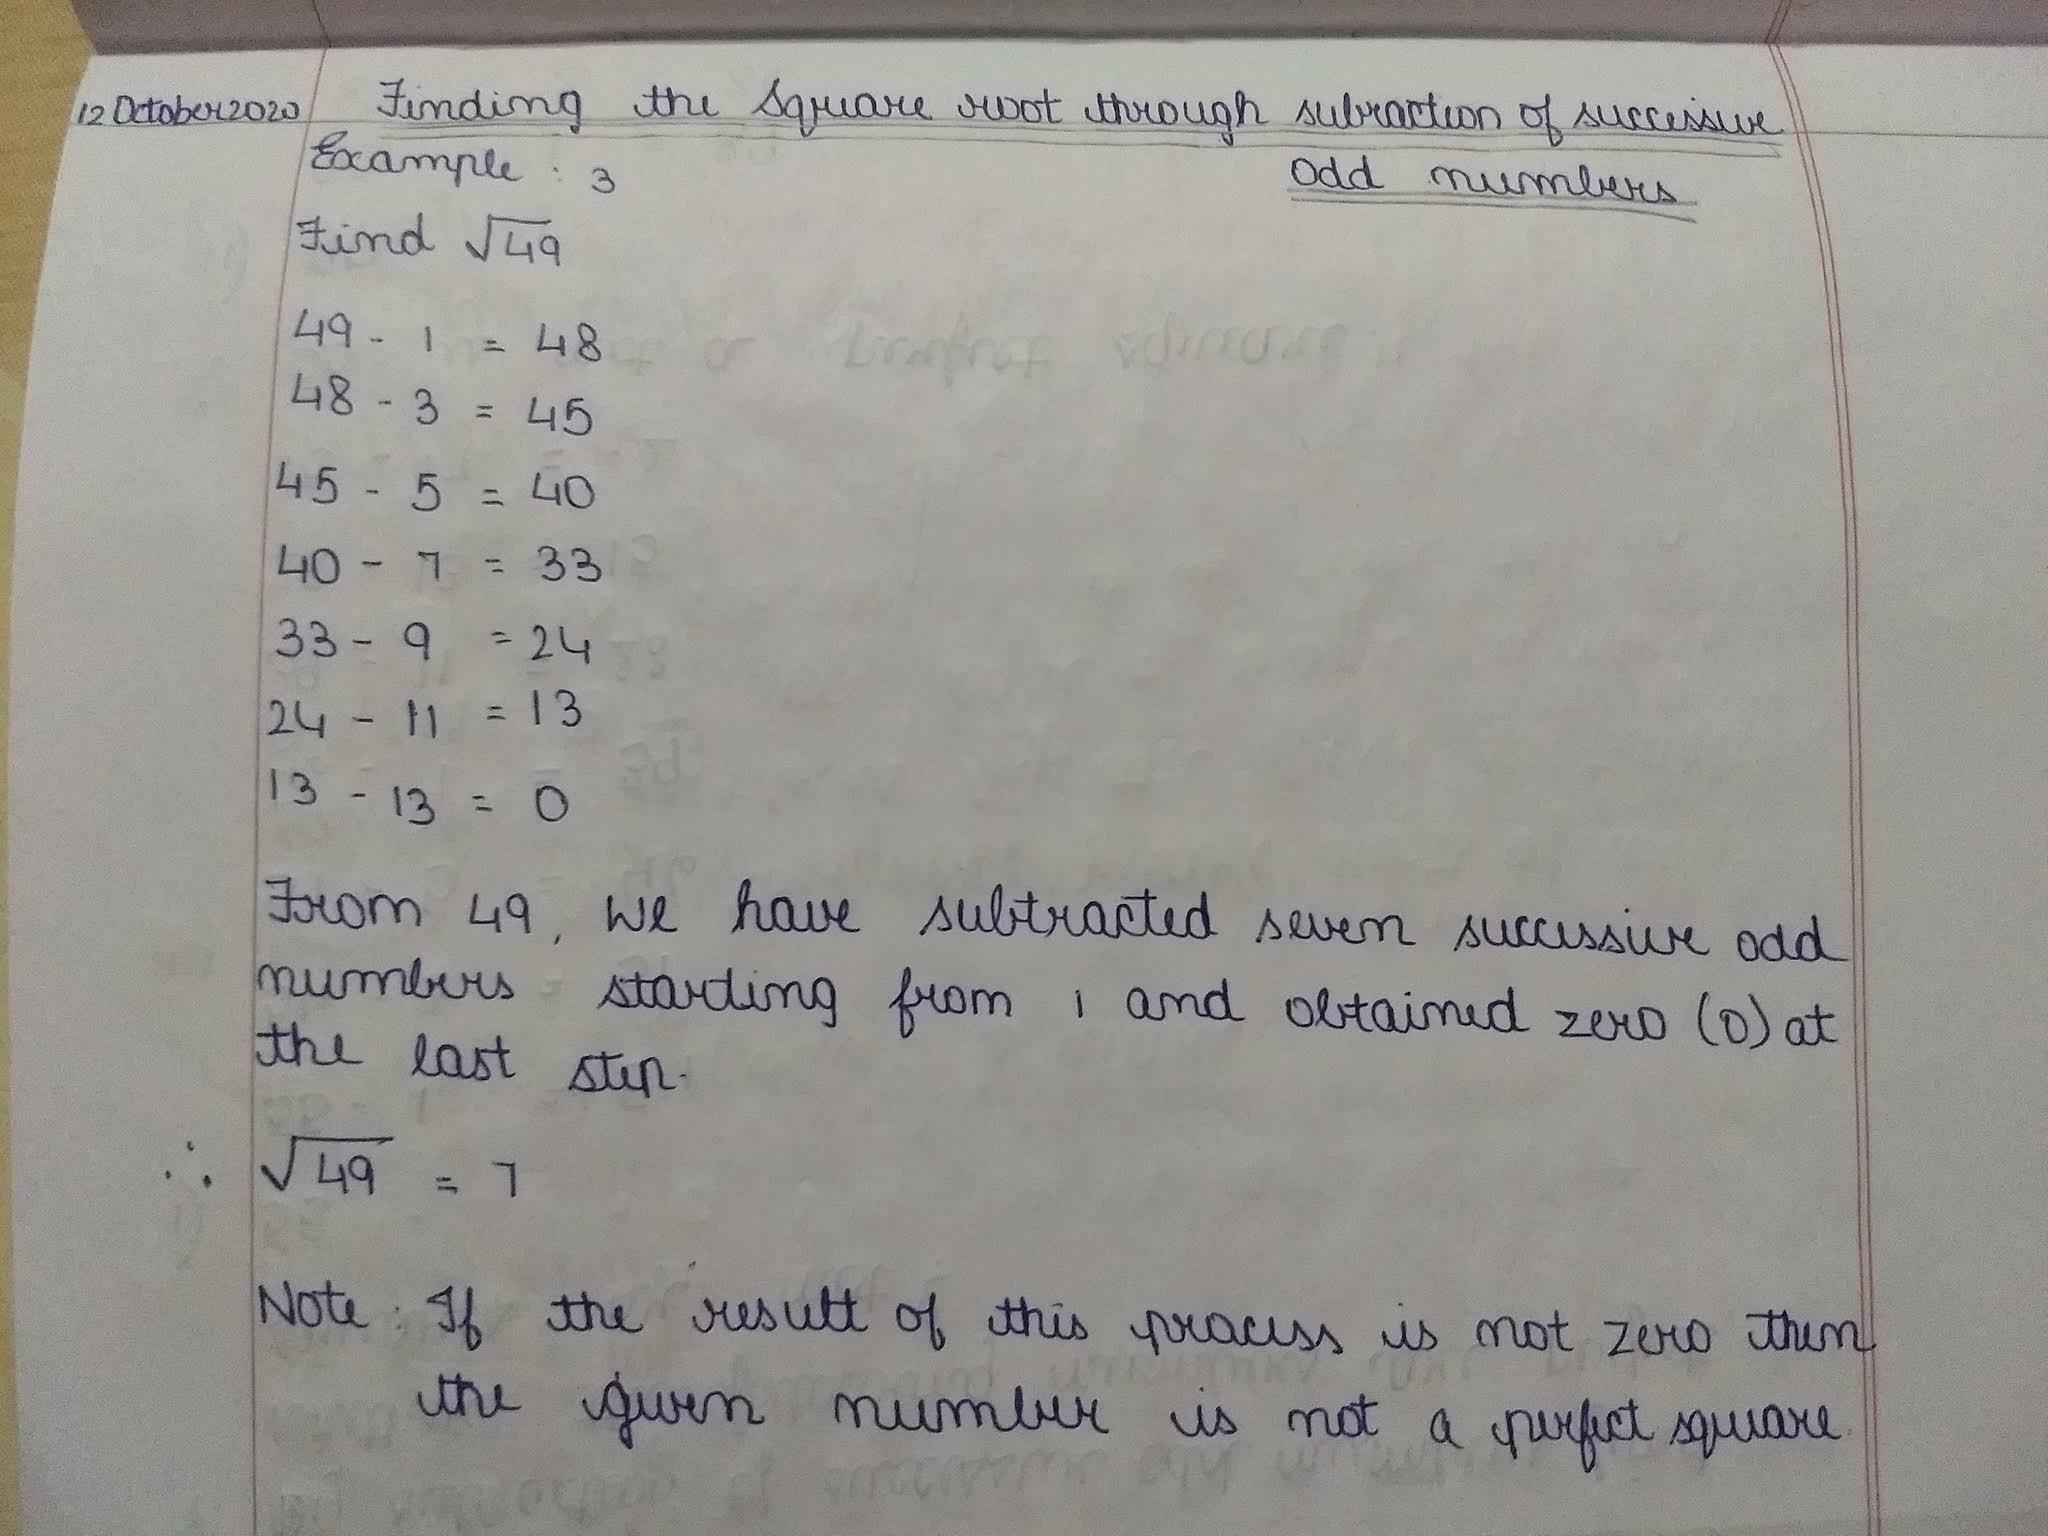 12 October 2020 Finding the Square root through subraction of successive
odd numbers
Example : 3
Find √49
49 - 1 = 48
48 - 3 = 45
45 - 5 = 40
40 - 7 = 33
33 - 9 = 24
24 - 11 = 13
13 - 13 = 0
From 49, we have subtracted seven successive odd
numbers starting from 1 and obtained zero (0) at
the last step.
∴ √49 = 7
Note : If the result of this process is not zero then
the given number is not a perfect square.